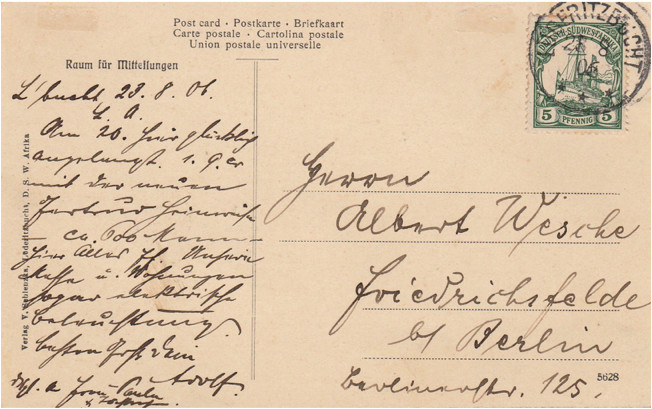 Post card · Postkarte · Briefkaart
Carte postale · Cartolina postale
Union postale universelle
LÜDERITZBUCHT
DEUTSCH-SÜDWESTAFRIKA
5 PFENNIG 5
Raum für Mitteilungen
L'bucht 23.8.06.
L. A.
Am 20. hier glücklich
angelangt.
mit der neuen
Gertrud
ca. 600 Mann
hier Alles
u. Wohnungen
sogar elektrische
Beleuchtung.
besten Gruß Dein
Adolf.
a Frau Paula
Herrn
Albert Wesche
Friedrichsfelde
b/ Berlin
Berlinerstr. 125,
5628
Verlag V. Lüderitzbucht, D. S. W. Afrika